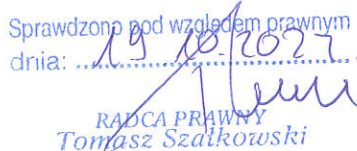 Sprawdzono pod względem prawnym
dnia: 19 10.2022
RADCA PRAWNY
Tomasz Szałkowski